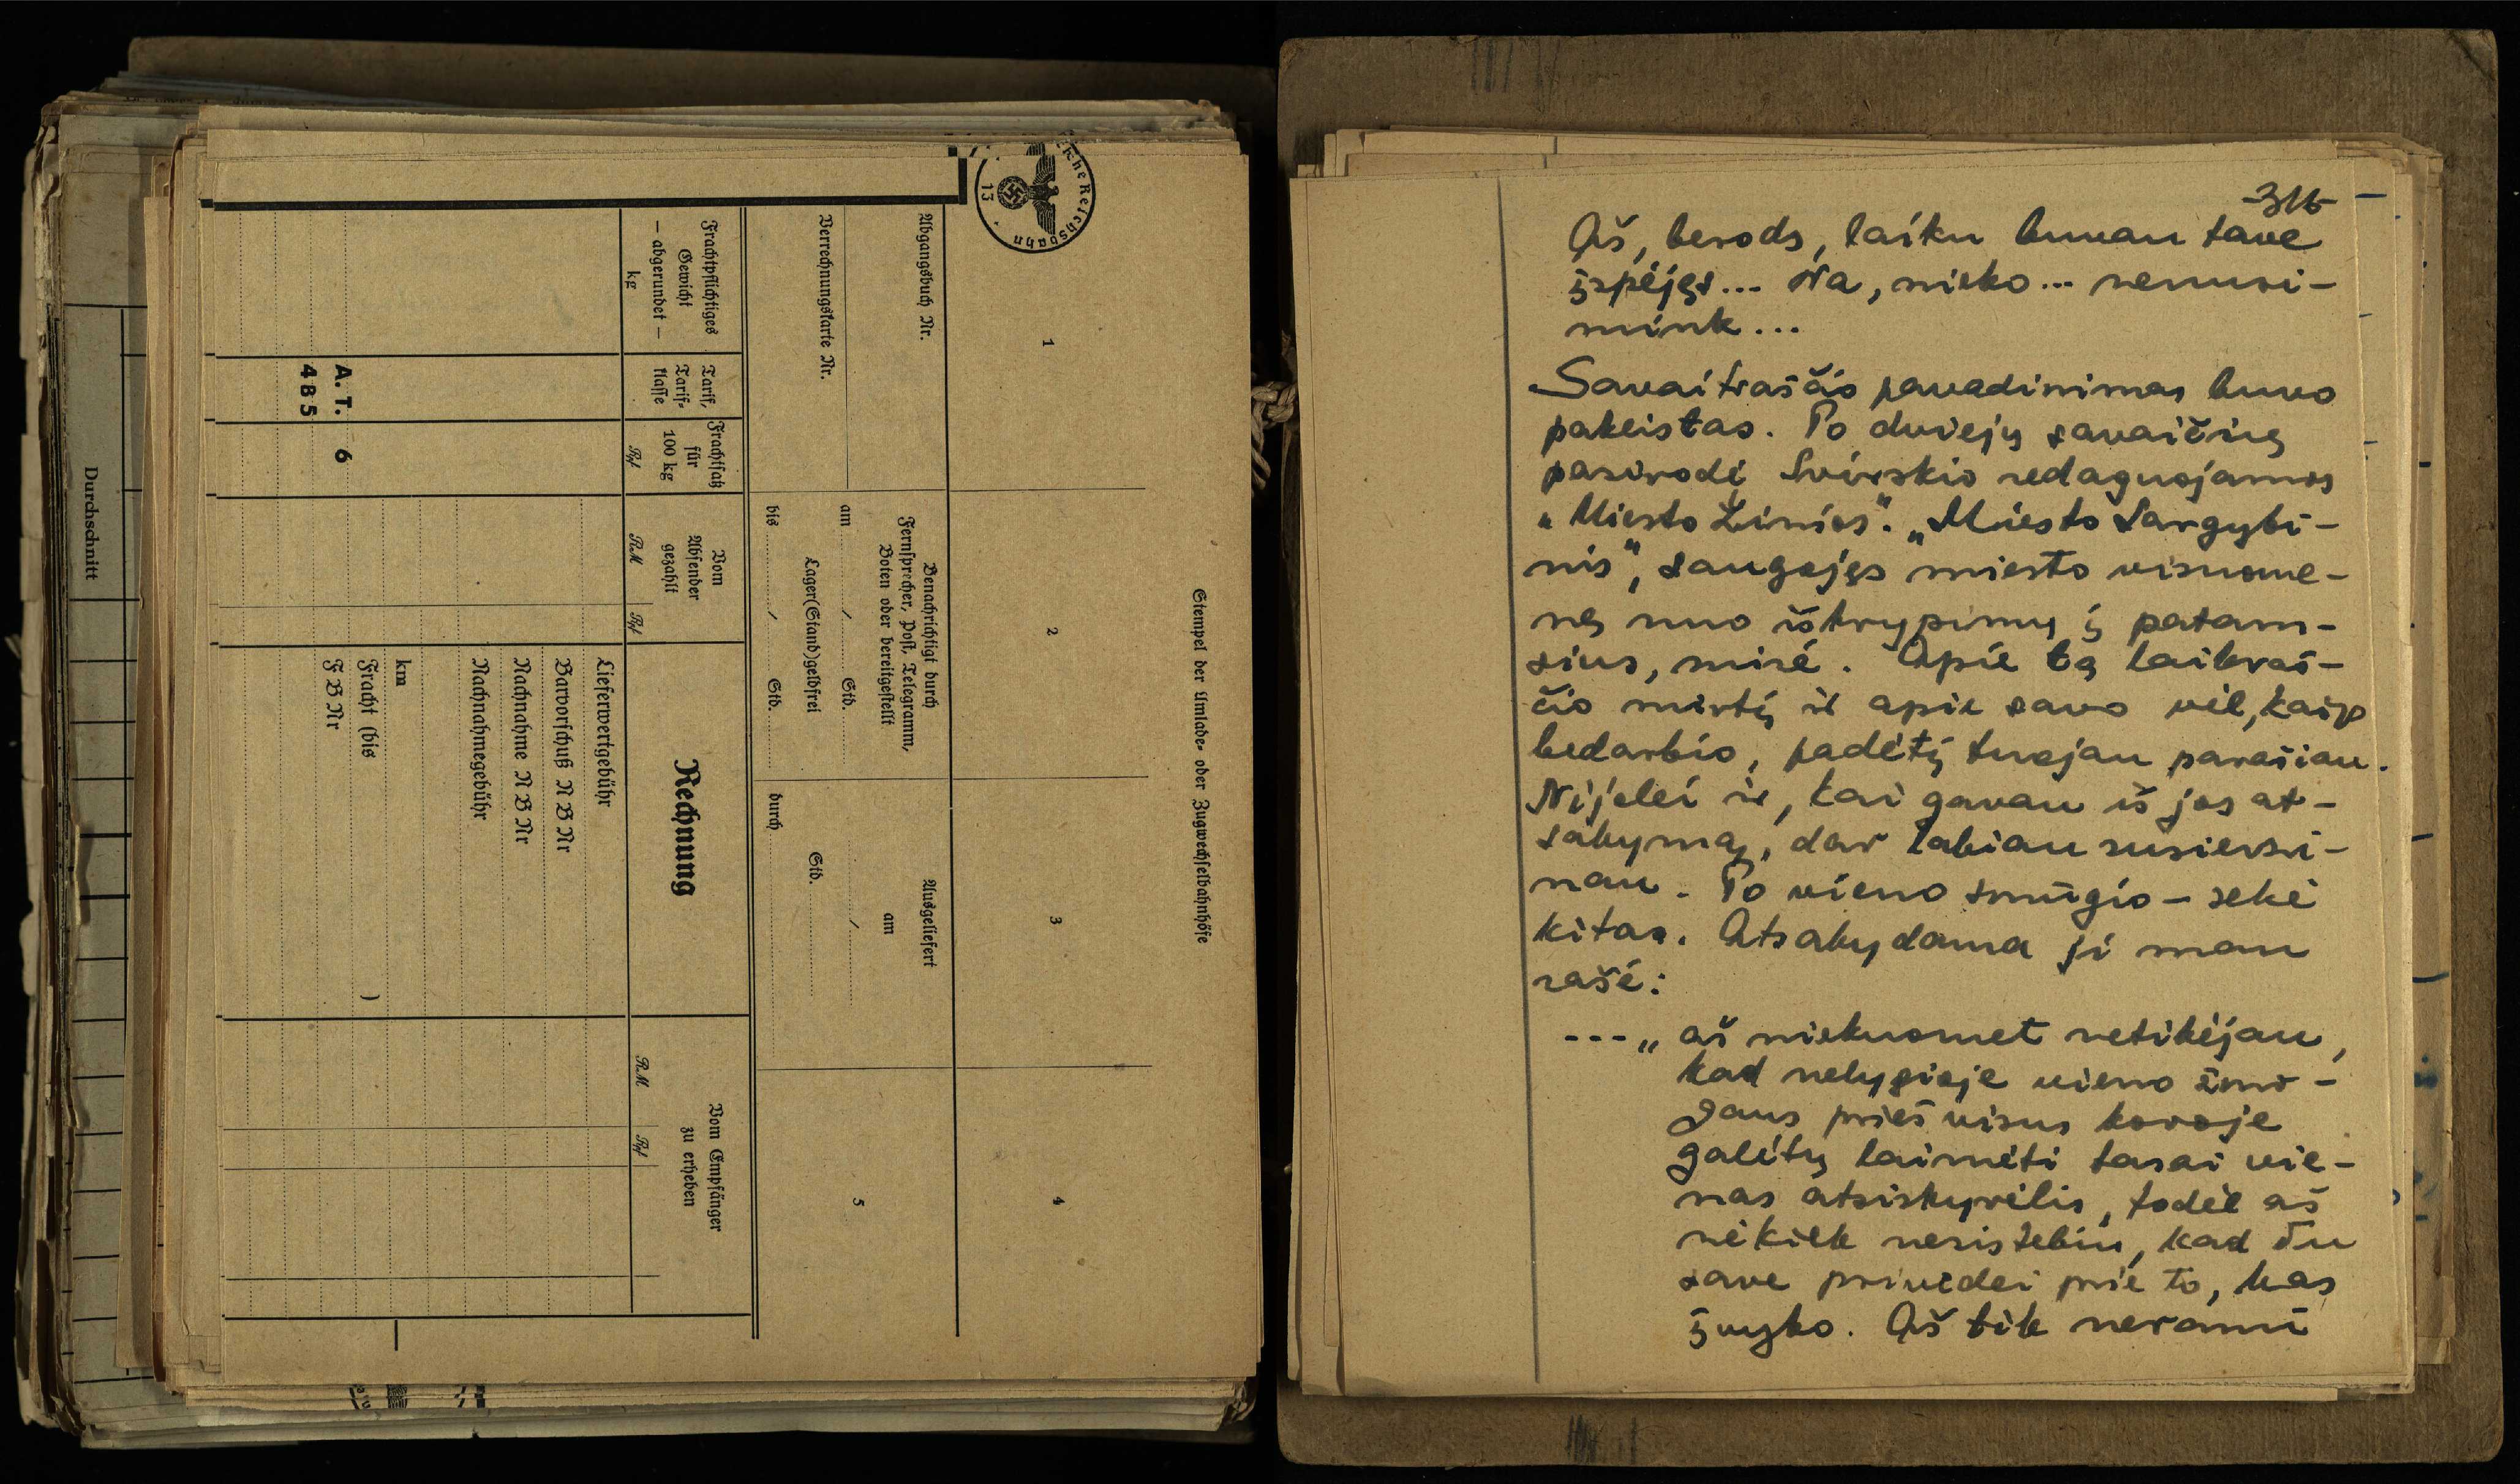 Stempel der Umlade- oder Zugwechselbahnhöfe
1
2
3
4
Abgangsbuch Nr.
Verrechnungskarte Nr.
Benachrichtigt durch
Fernsprecher, Post, Telegramm,
Boten oder bereitgestellt
am / Std.
Lager(Stand)geldfrei
bis / Std.
Ausgeliefert
am
/
Std.
durch
5
Frachtpflichtiges
Gewicht
— abgerundet —
kg
Tarif,
Tarif-
klasse
Frachtsatz
für
100 kg
Rpf
Vom
Absender
gezahlt
RM Rpf
Rechnung
Vom Empfänger
zu erheben
RM Rpf
Lieferwertgebühr
Barvorschuß N B Nr
Nachnahme N B Nr
Nachnahmegebühr
km
Fracht (bis )
F B Nr
A. T. 6
4 B 5
Reichsbahn
13
Durchschnitt
-316-
Aš, berods, laiku buvau tave
įspėjęs... Na, nieko... nenusi-
mink...
Savaitraščio pavadinimas buvo
pakeistas. Po dviejų savaičių
pasirodė Svirskio redaguojamos
„Miesto Žinios". „Miesto Sargybi-
nis", saugojęs miesto visuome-
nę nuo iškrypimų į patam-
sius, mirė. Apie tą laikraš-
čio mirtį ir apie savo vėl, kaip
bedarbio, padėtį tuojau parašiau.
Nijolei ir, kai gavau iš jos at-
sakymą, dar labiau susierzi-
nau. Po vieno smūgio – sekė
kitas. Atsakydama ji man
rašė:
---„ aš niekuomet netikėjau,
kad nelygioje vieno žmo-
gaus prieš visus kovoje
galėtų laimėti tasai vie-
nas atsiskyrėlis, todėl aš
nėkiek nesistebiu, kad Tu
save privedei prie to, kas
įvyko. Aš tik nerami